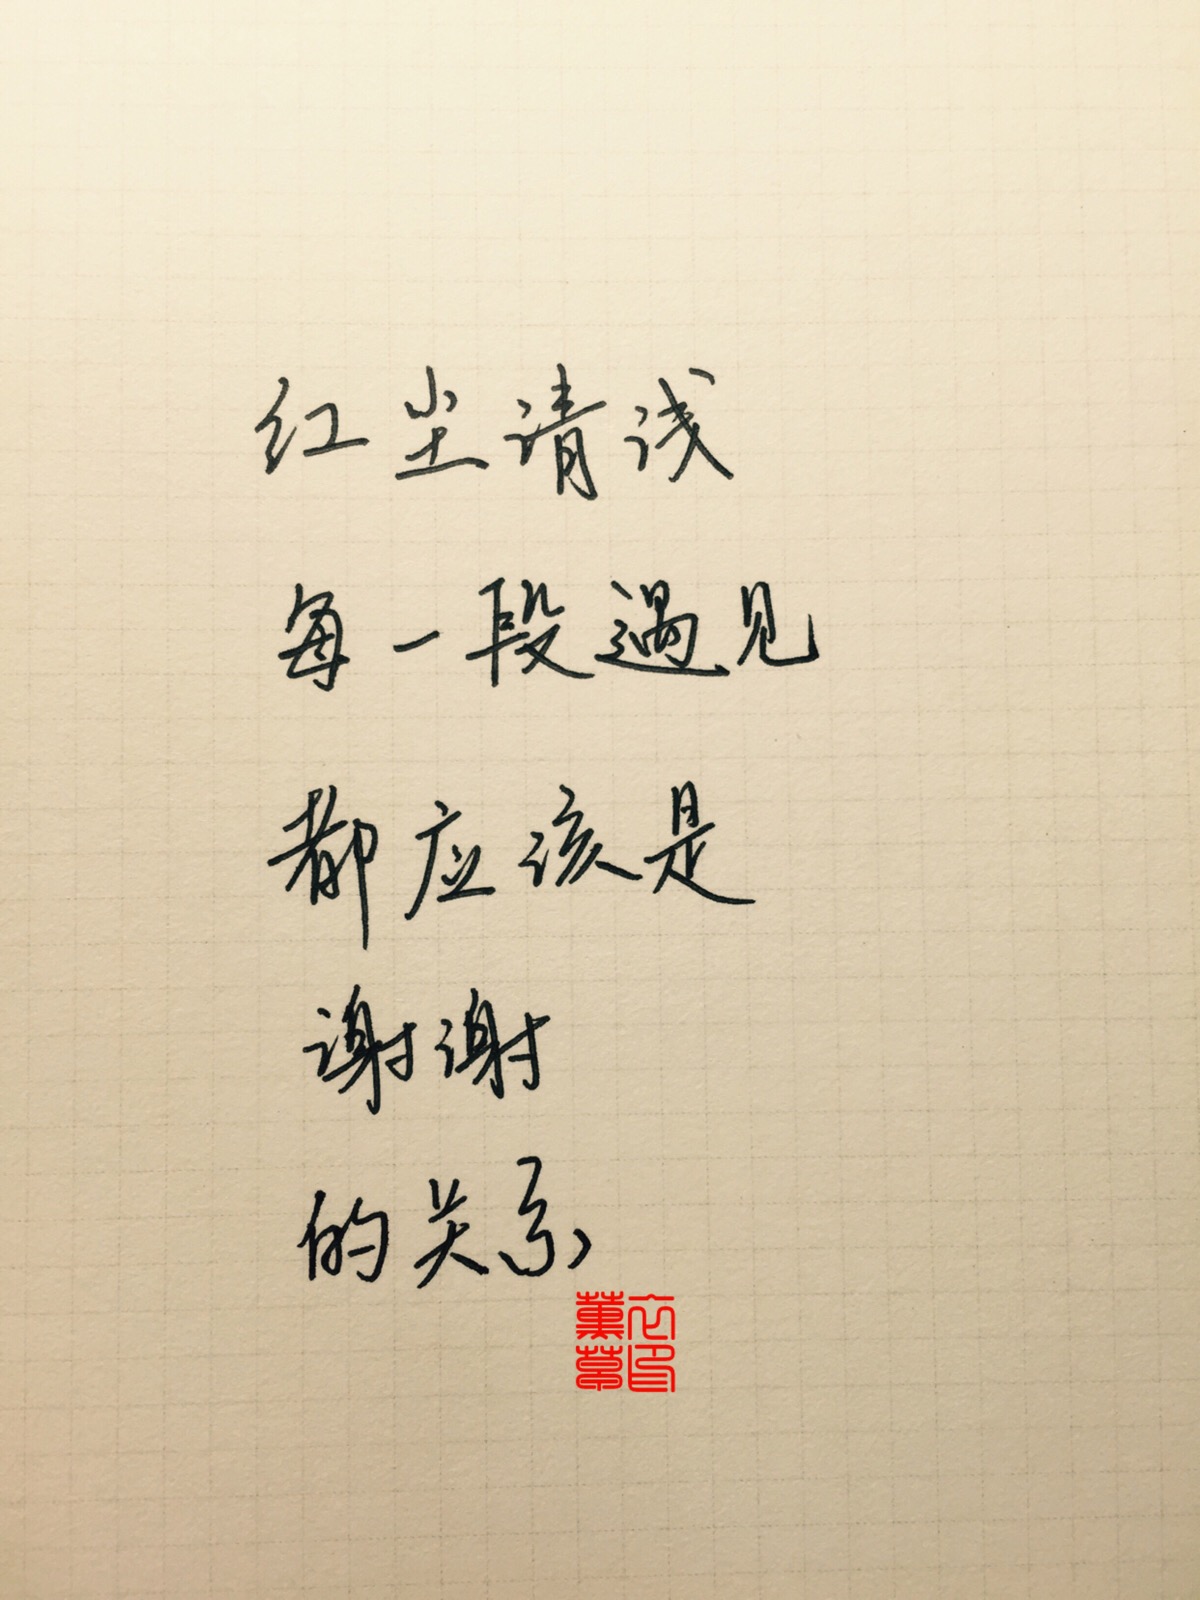 红尘清浅
每一段遇见
都应该是
谢谢
的关系
薰衣
草印